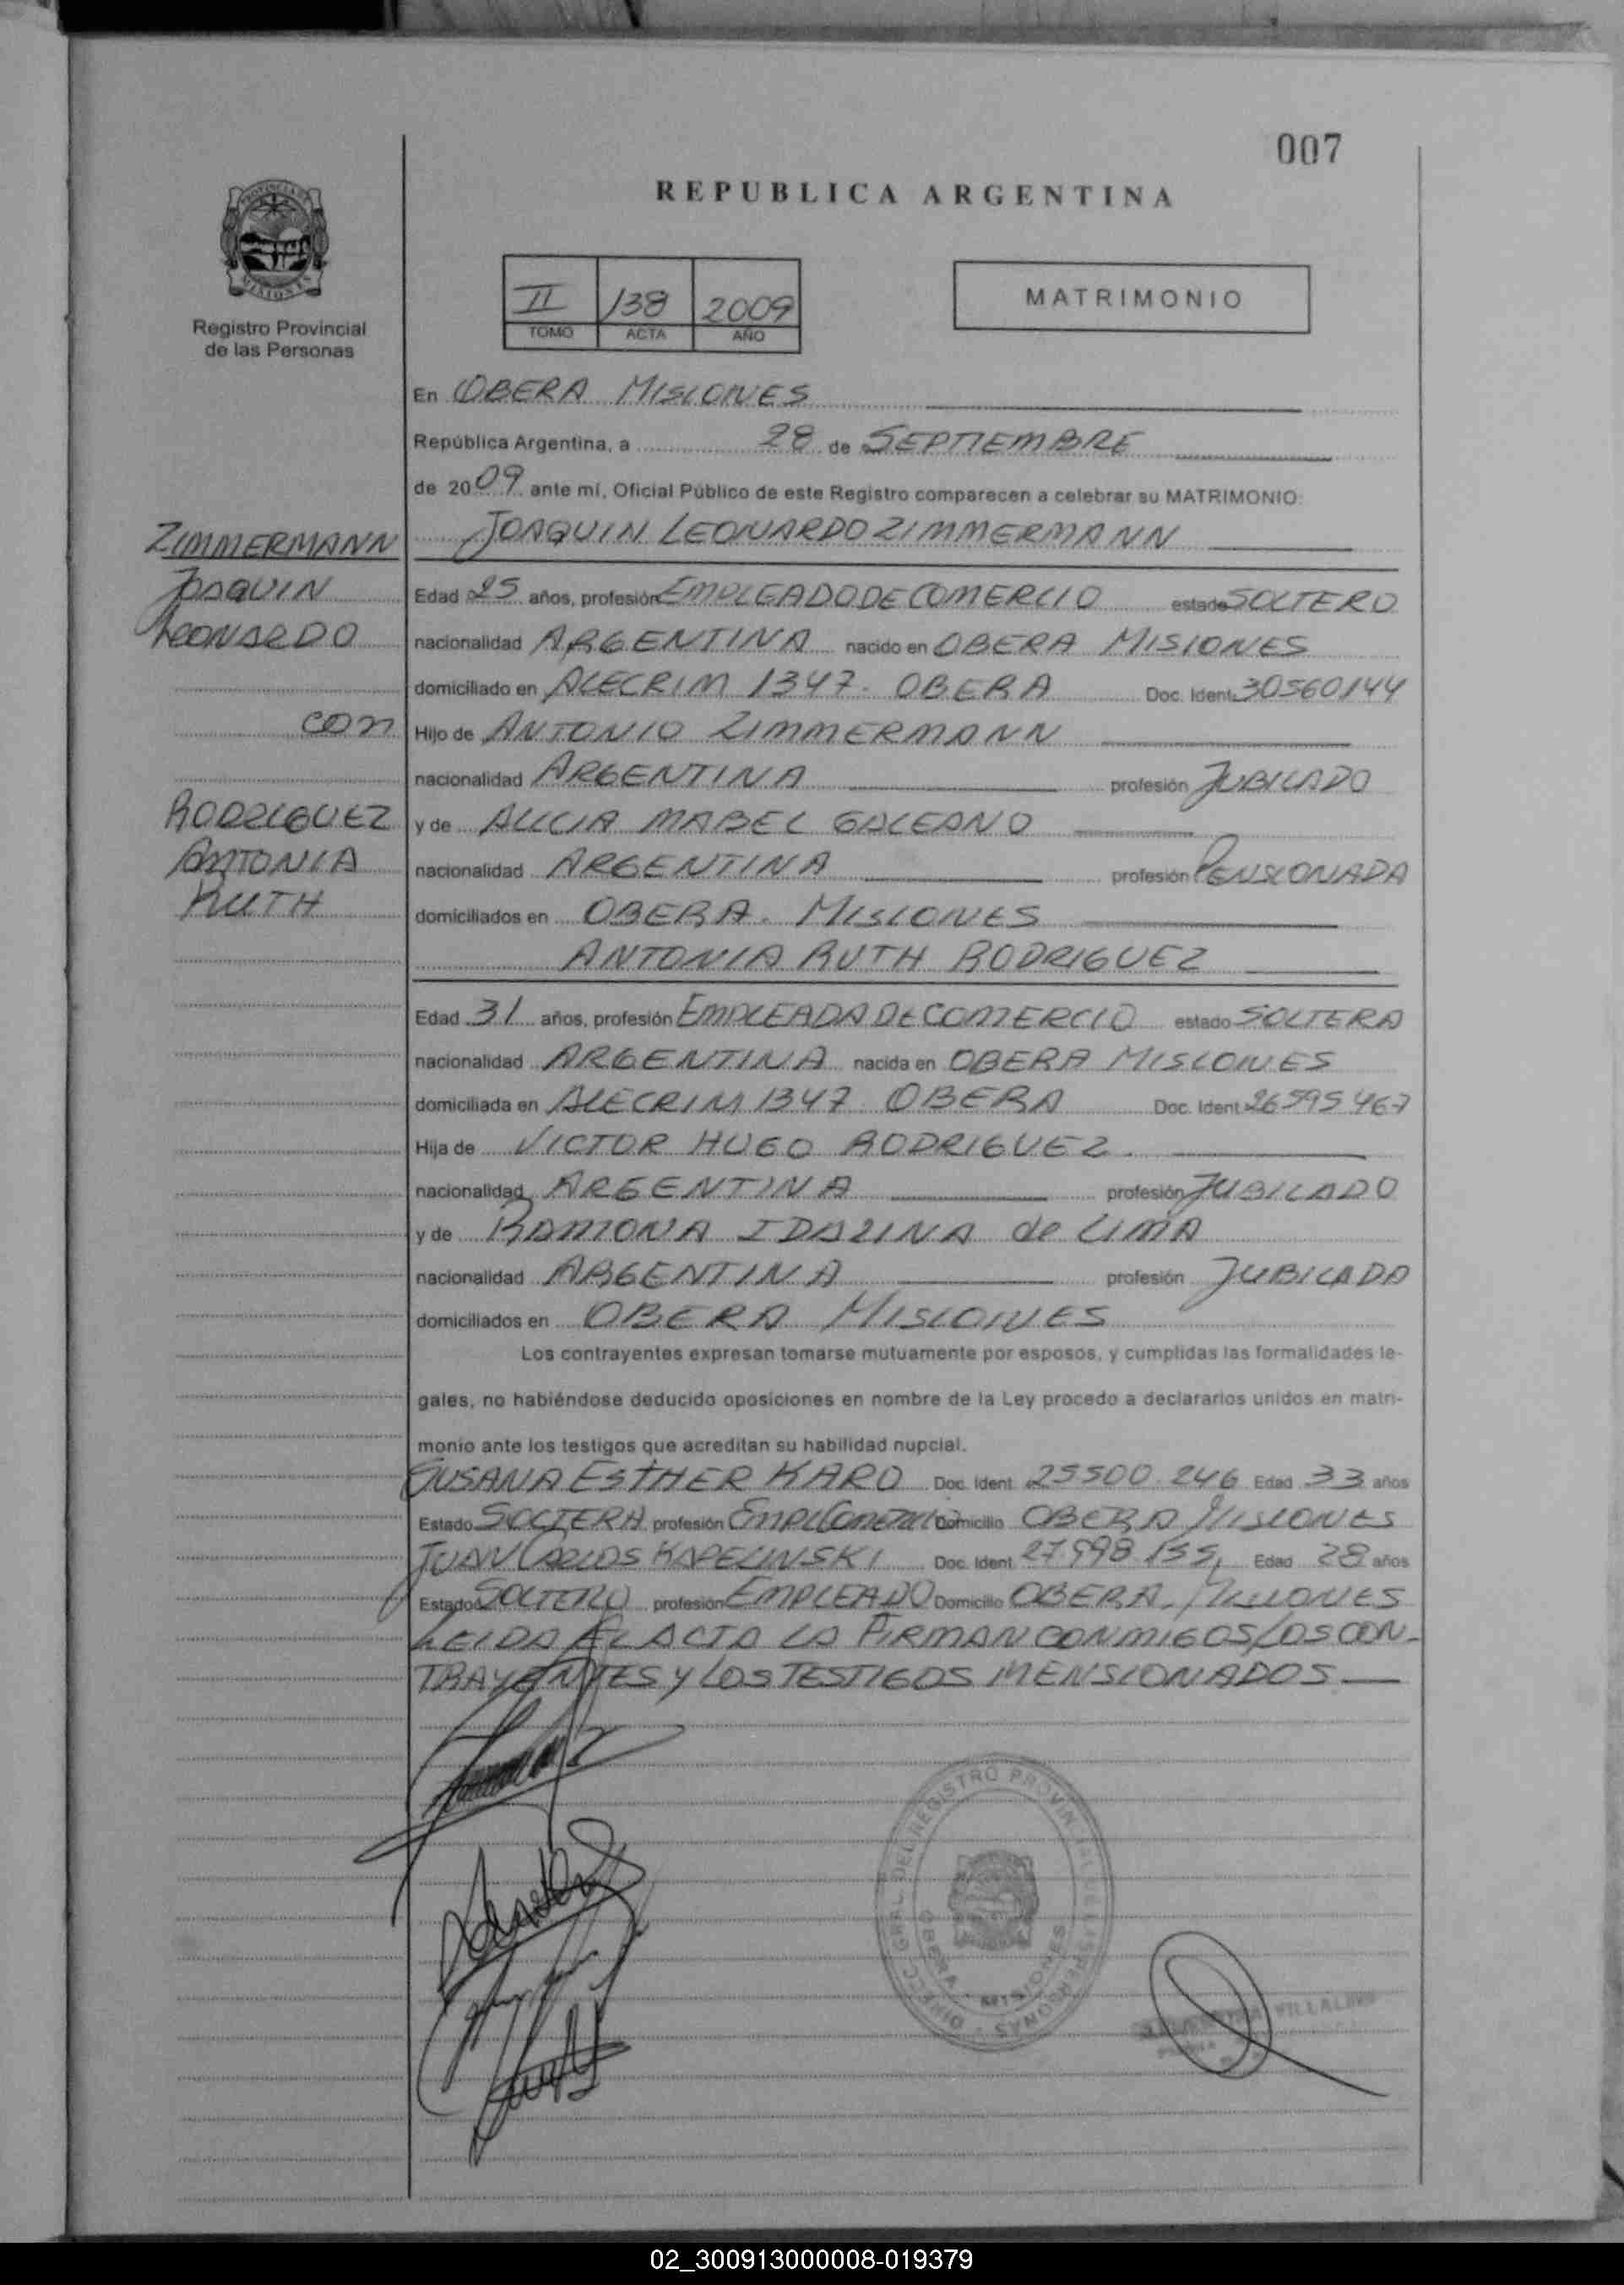 007
REPUBLICA ARGENTINA
PROVINCIA DE
MISIONES
Registro Provincial
de las Personas
II 138 2009
TOMO ACTA AÑO
MATRIMONIO
En OBERA MISIONES
República Argentina, a 28 de SEPTIEMBRE
de 2009 ante mí, Oficial Público de este Registro comparecen a celebrar su MATRIMONIO:
ZIMMERMANN JOAQUIN LEONARDO ZIMMERMANN
JOAQUIN Edad 25 años, profesión EMPLEADO DE COMERCIO estado SOLTERO
LEONARDO nacionalidad ARGENTINA nacido en OBERA MISIONES
domiciliado en ALECRIM 1347. OBERA Doc. Ident. 30560144
con Hijo de ANTONIO ZIMMERMANN
nacionalidad ARGENTINA profesión JUBILADO
RODRIGUEZ y de ALICIA MABEL GALEANO
ANTONIA nacionalidad ARGENTINA profesión PENSIONADA
RUTH domiciliados en OBERA. MISIONES
ANTONIA RUTH RODRIGUEZ
Edad 31 años, profesión EMPLEADA DE COMERCIO estado SOLTERA
nacionalidad ARGENTINA nacida en OBERA MISIONES
domiciliada en ALECRIM 1347 OBERA Doc. Ident. 26595467
Hija de VICTOR HUGO RODRIGUEZ.
nacionalidad ARGENTINA profesión JUBILADO
y de RAMONA IDALINA de LIMA
nacionalidad ARGENTINA profesión JUBILADA
domiciliados en OBERA MISIONES
Los contrayentes expresan tomarse mutuamente por esposos, y cumplidas las formalidades le-
gales, no habiéndose deducido oposiciones en nombre de la Ley procedo a declararlos unidos en matri-
monio ante los testigos que acreditan su habilidad nupcial.
SUSANA ESTHER KARO Doc. Ident. 25500.246 Edad 33 años
Estado SOLTERA profesión Domicilio OBERA MISIONES
JUAN CARLOS KAPELINSKI Doc. Ident. Edad 28 años
Estado SOLTERO profesión EMPLEADO Domicilio OBERA, MISIONES
LEIDA EL ACTA LA FIRMAN CONMIGOS/LOS CON-
TRAYENTES Y LOS TESTIGOS MENSIONADOS
DIRECC GRAL DEL REGISTRO PROVINCIAL DE LAS PERSONAS
OBERA - MISIONES
02_300913000008-019379